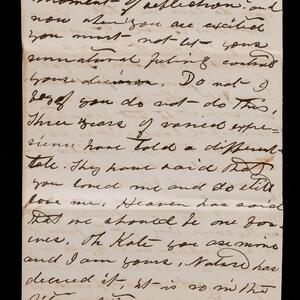 moment of affliction: and
now when you are excited
you must not let your
unnatural feeling control
your decision. Do not I
beg of you do not do this.
Three years of varied expe-
rience have told a different
tale. They have said that
you loved me and do still
love me. Heaven has said
that we should be one for-
ever. Oh Kate you are mine
and I am yours. Nature has
decreed it, it is so in the